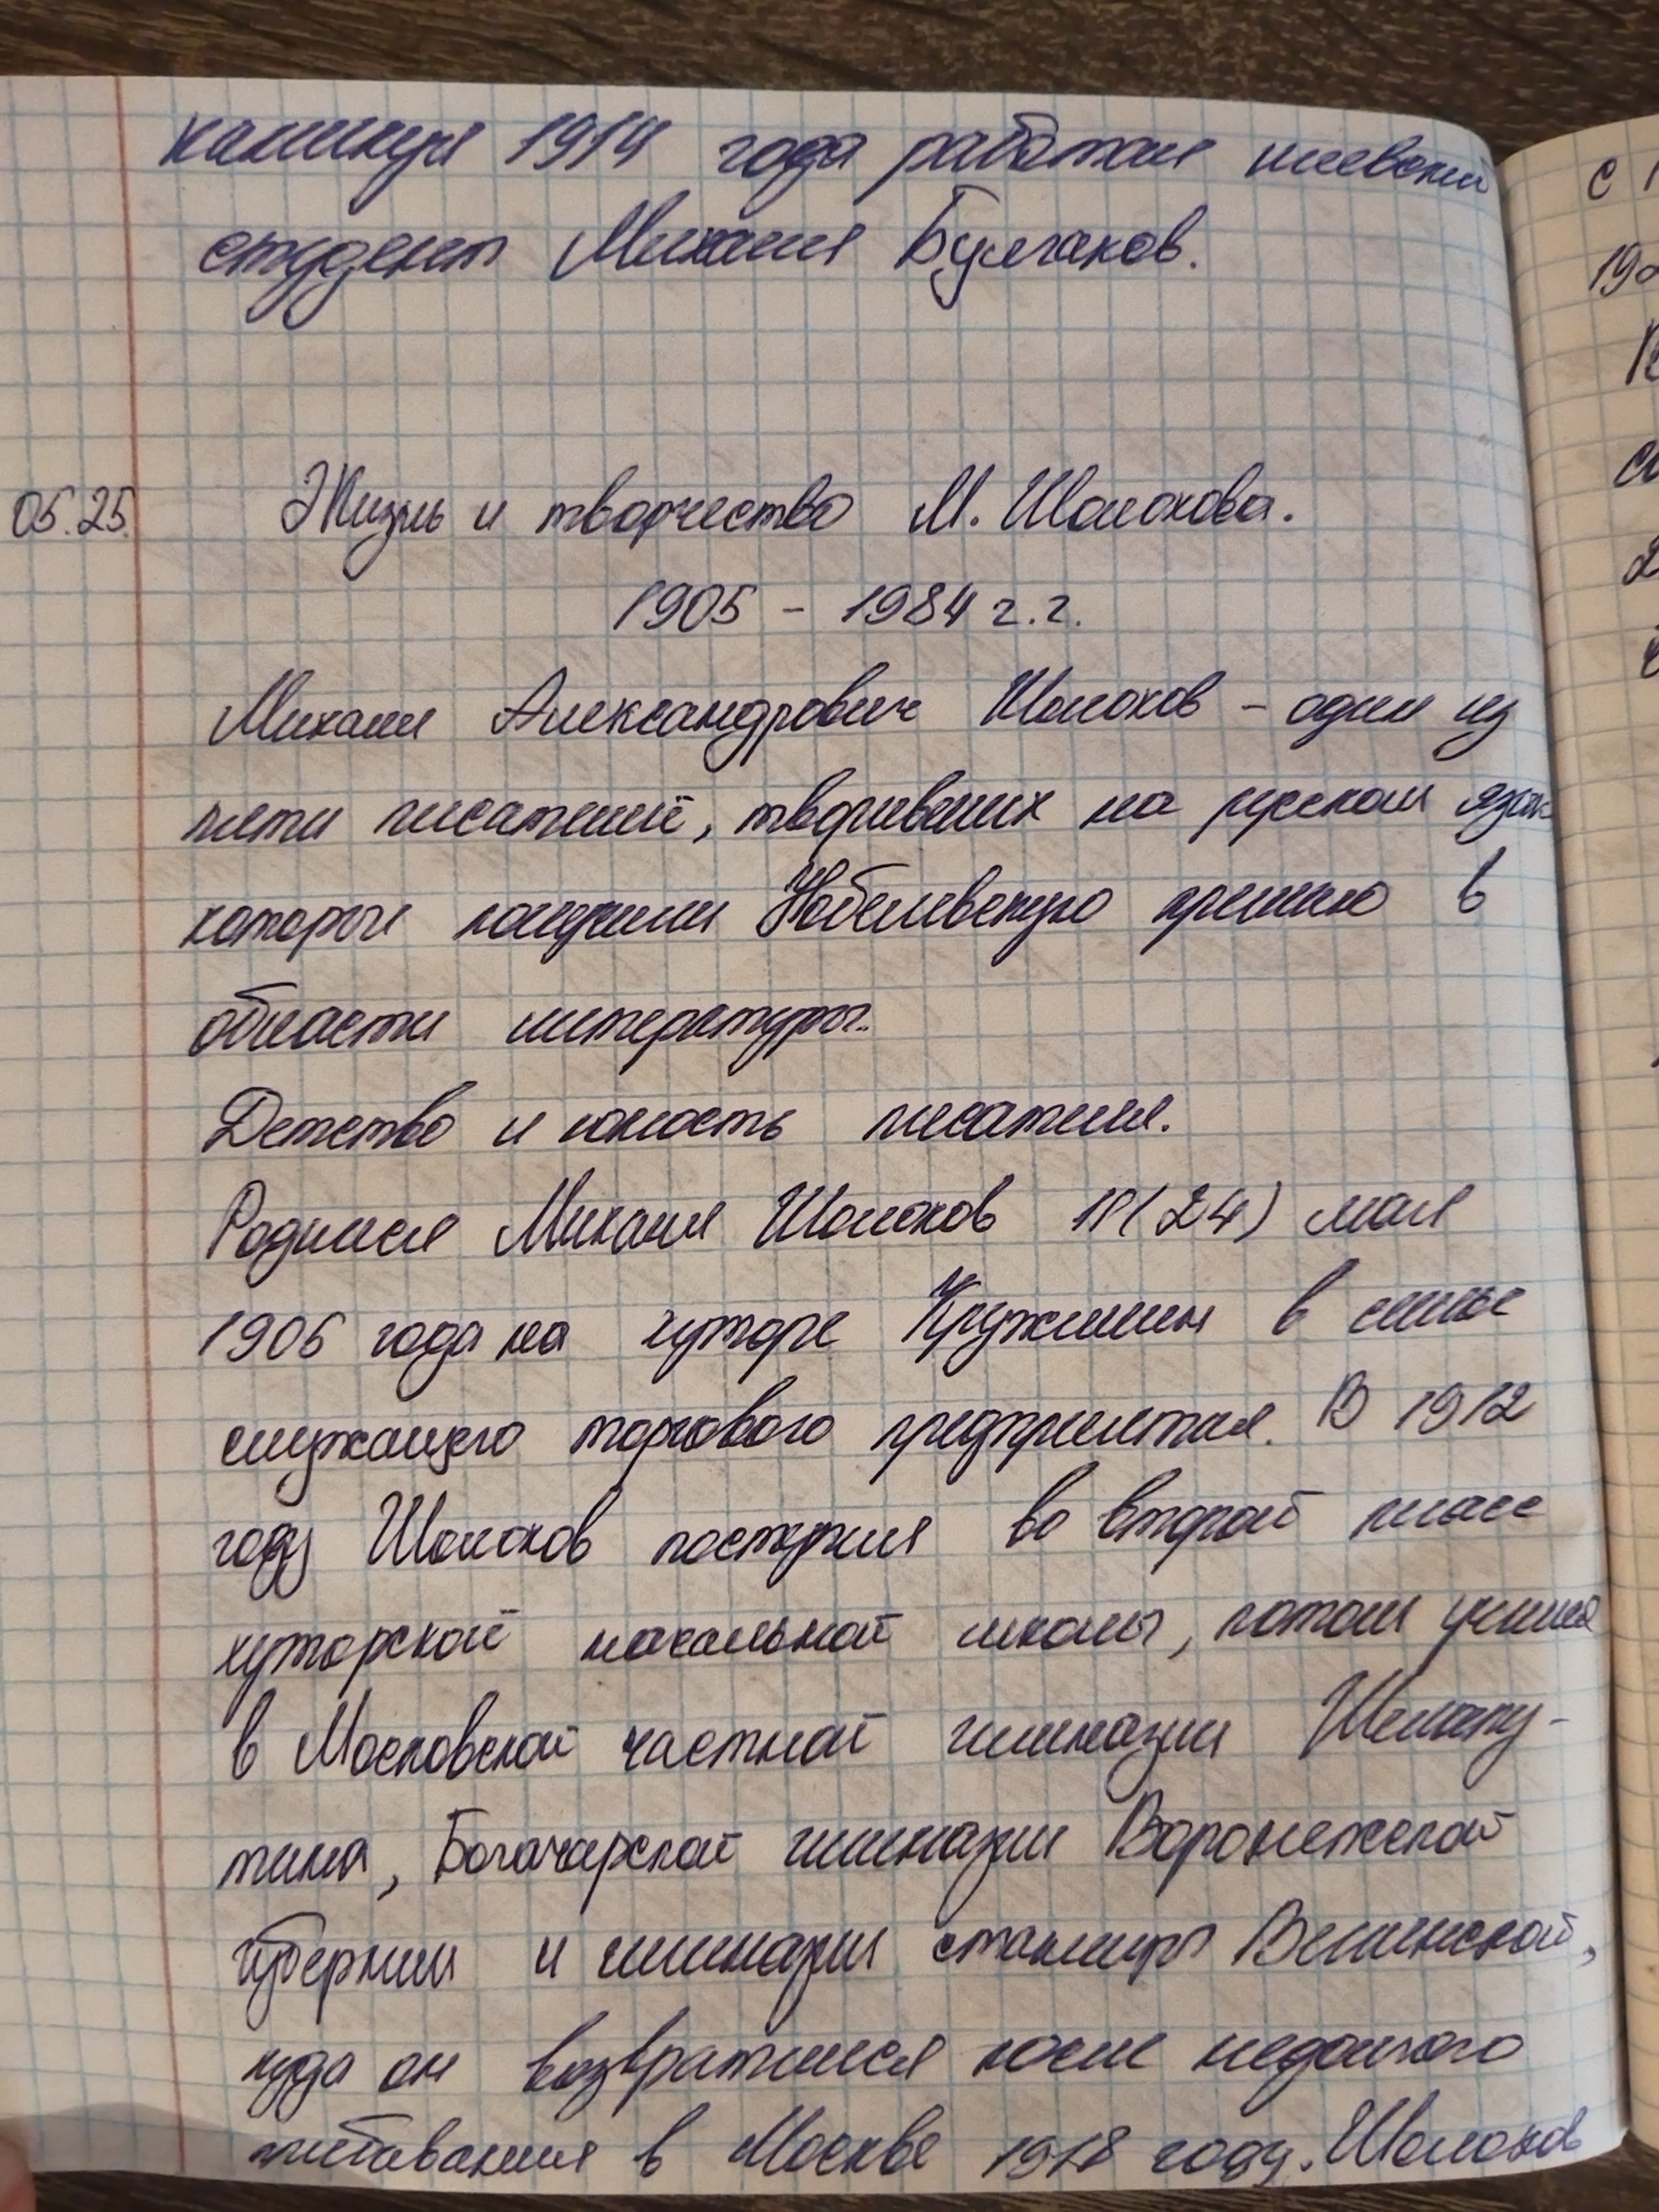 каникул 1914 года работал киевский
студент Михаил Булгаков.
05.25. Жизнь и творчество М. Шолохова.
1905 - 1984 г.г.
Михаил Александрович Шолохов - один из
пяти писателей, творивших на русском язык
которые получили Нобелевскую премию в
области литературы.
Детство и юность писателя.
Родился Михаил Шолохов 11(24) мая
1906 года на хуторе Кружилин в семье
служащего торгового предприятия. В 1912
году Шолохов поступил во второй класс
хуторской начальной школы, потом учился
в Московской частной гимназии Шелапу-
тина, Богачарской гимназии Воронежской
губернии и гимназии станицы Вешенской,
куда он возвратился после недолгого
пребывания в Москве 1918 году. Шолохов